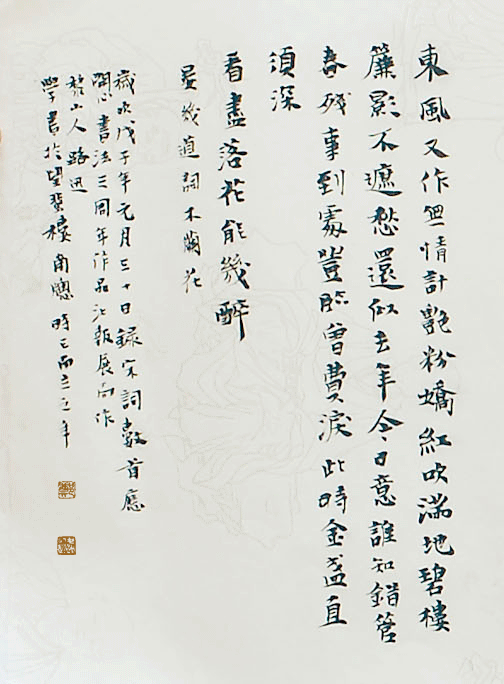 東風又作無情計艷粉嬌紅吹滿地碧樓
簾影不遮愁還似去年今日意誰知錯管
春殘事到處豈臨曾費淚此時金盞直
須深
看盡落花能幾醉
晏幾道詞木蘭花
歲次戊子年元月三十日錄宋詞數首應
開心書法三周年作品匯報展而作
黎山人路迅
學書於望翠樓南窗時已而立三年